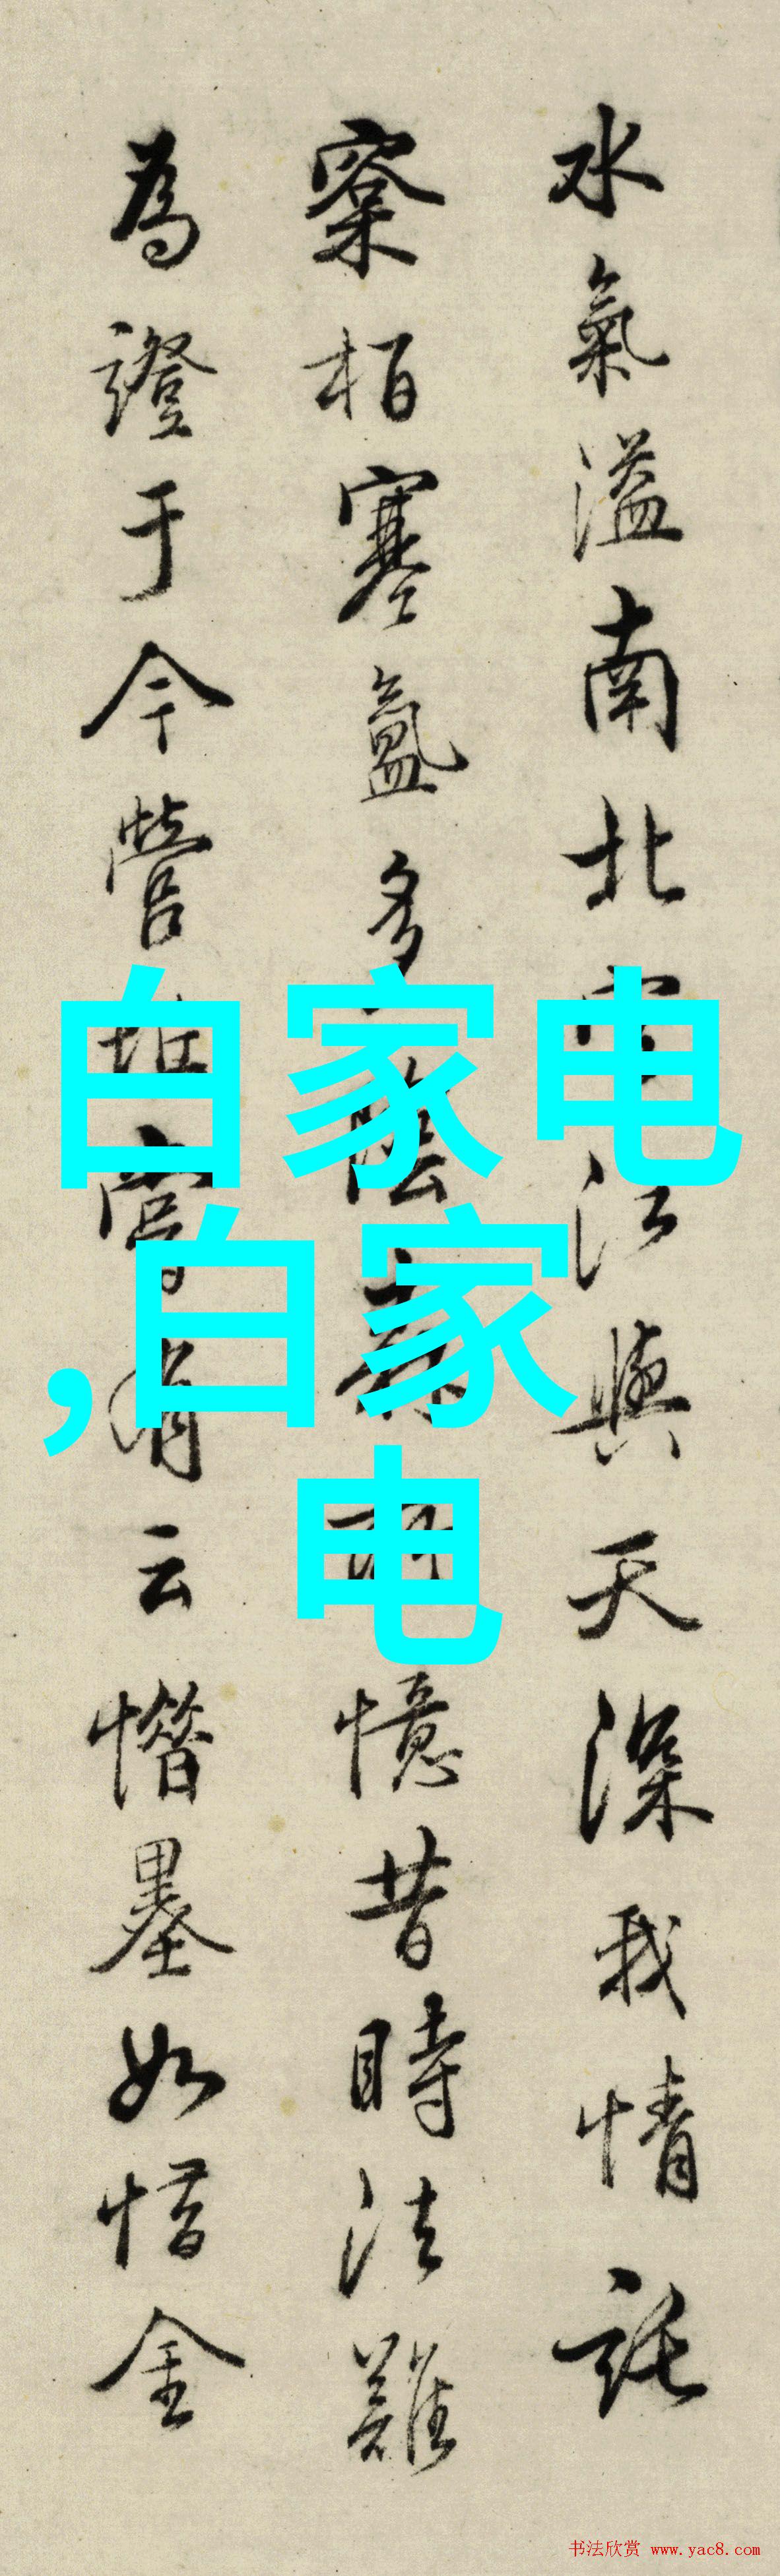 水氣溢南北江與天深我情託
窠栢寒氲多陰憶昔時法難
為證于今營有云憯墨如惜金
白家电
,白家
电
书法欣赏 www.yac8.com